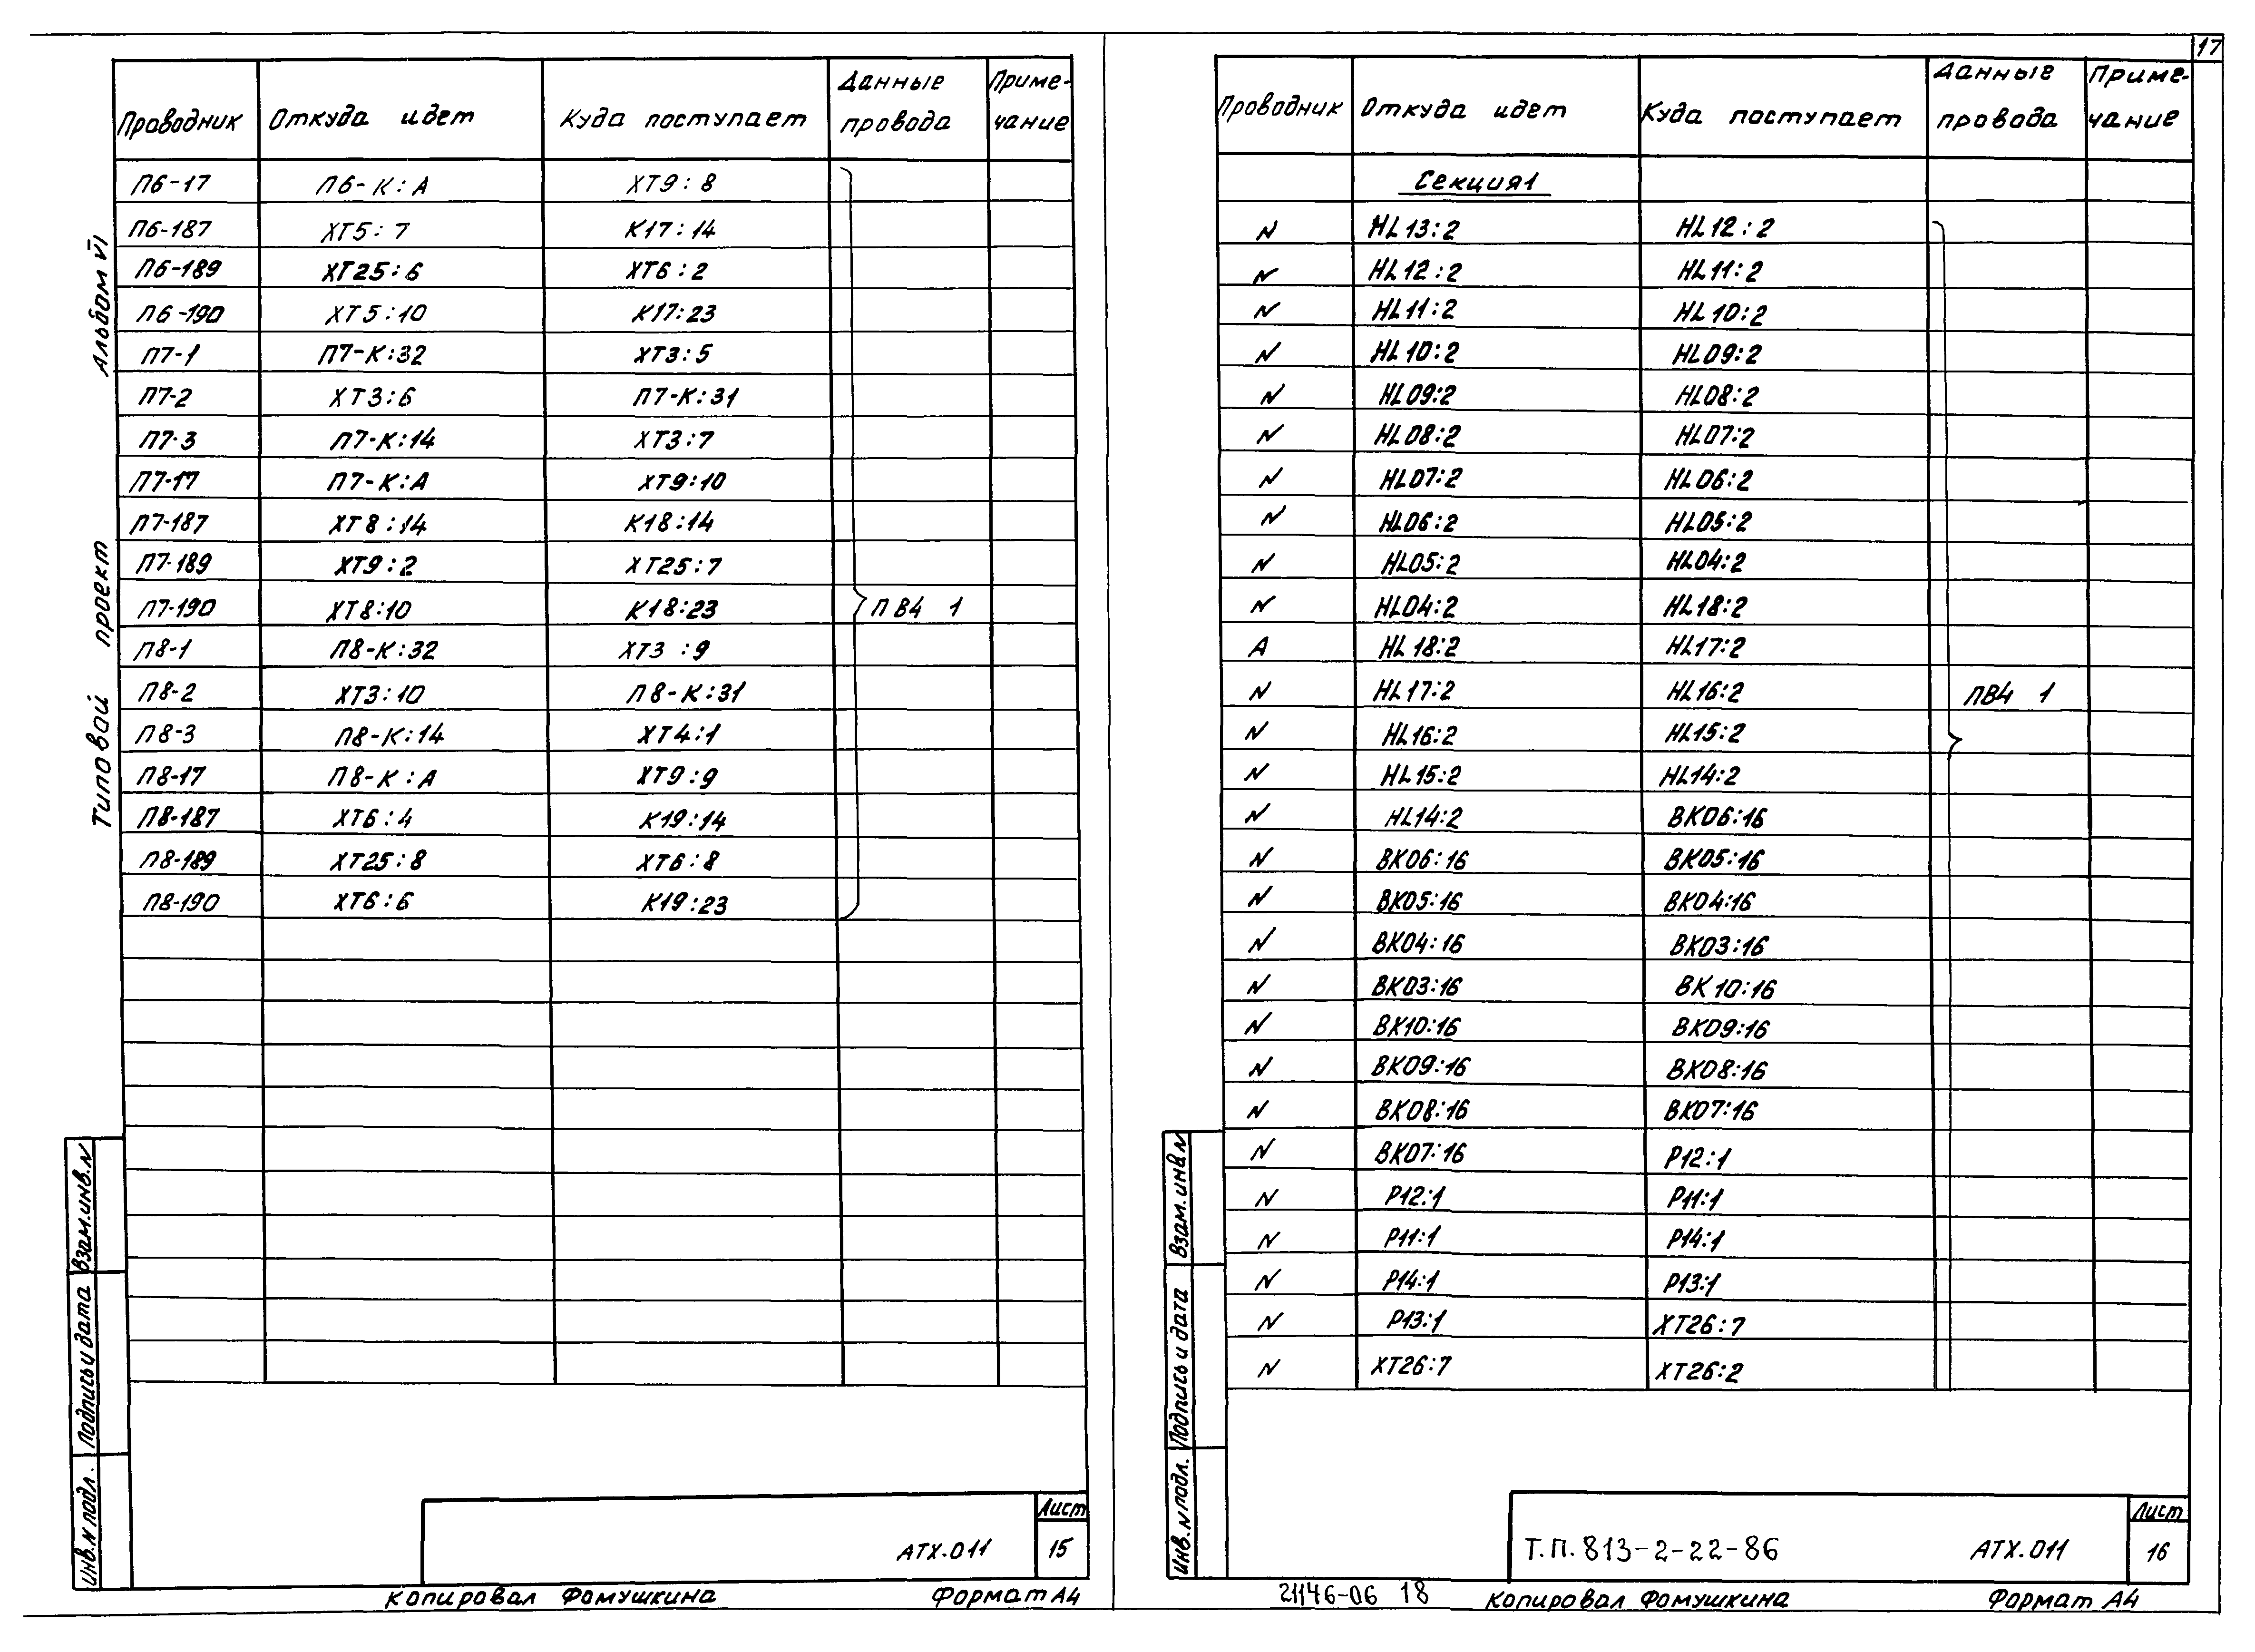 17
Альбом VI
Типовой проект
Проводник Откуда идет Куда поступает Данные провода Приме-чание
П6-17 П6-К:А ХТ9:8
П6-187 ХТ5:7 К17:14
П6-189 ХТ25:6 ХТ6:2
П6-190 ХТ5:10 К17:23
П7-1 П7-К:32 ХТ3:5
П7-2 ХТ3:6 П7-К:31
П7-3 П7-К:14 ХТ3:7
П7-17 П7-К:А ХТ9:10
П7-187 ХТ8:14 К18:14
П7-189 ХТ9:2 ХТ25:7
П7-190 ХТ8:10 К18:23 ПВ4 1
П8-1 П8-К:32 ХТ3:9
П8-2 ХТ3:10 П8-К:31
П8-3 П8-К:14 ХТ4:1
П8-17 П8-К:А ХТ9:9
П8-187 ХТ6:4 К19:14
П8-189 ХТ25:8 ХТ6:8
П8-190 ХТ6:6 К19:23
Взам.инв.N
Подпись и дата
Инв.N подл.
Лист
АТХ.011 15
Копировал Фомушкина Формат А4
Проводник Откуда идет Куда поступает Данные провода Приме-чание
Секция1
N HL13:2 HL12:2
N HL12:2 HL11:2
N HL11:2 HL10:2
N HL10:2 HL09:2
N HL09:2 HL08:2
N HL08:2 HL07:2
N HL07:2 HL06:2
N HL06:2 HL05:2
N HL05:2 HL04:2
N HL04:2 HL18:2
А HL18:2 HL17:2
N HL17:2 HL16:2 ПВ4 1
N HL16:2 HL15:2
N HL15:2 HL14:2
N HL14:2 ВК06:16
N ВК06:16 ВК05:16
N ВК05:16 ВК04:16
N ВК04:16 ВК03:16
N ВК03:16 ВК10:16
N ВК10:16 ВК09:16
N ВК09:16 ВК08:16
N ВК08:16 ВК07:16
N ВК07:16 Р12:1
N Р12:1 Р11:1
N Р11:1 Р14:1
N Р14:1 Р13:1
N Р13:1 ХТ26:7
N ХТ26:7 ХТ26:2
Взам.инв.N
Подпись и дата
Инв.N подл.
Лист
Т.П.813-2-22-86 АТХ.011 16
21146-06 18 Копировал Фомушкина Формат А4